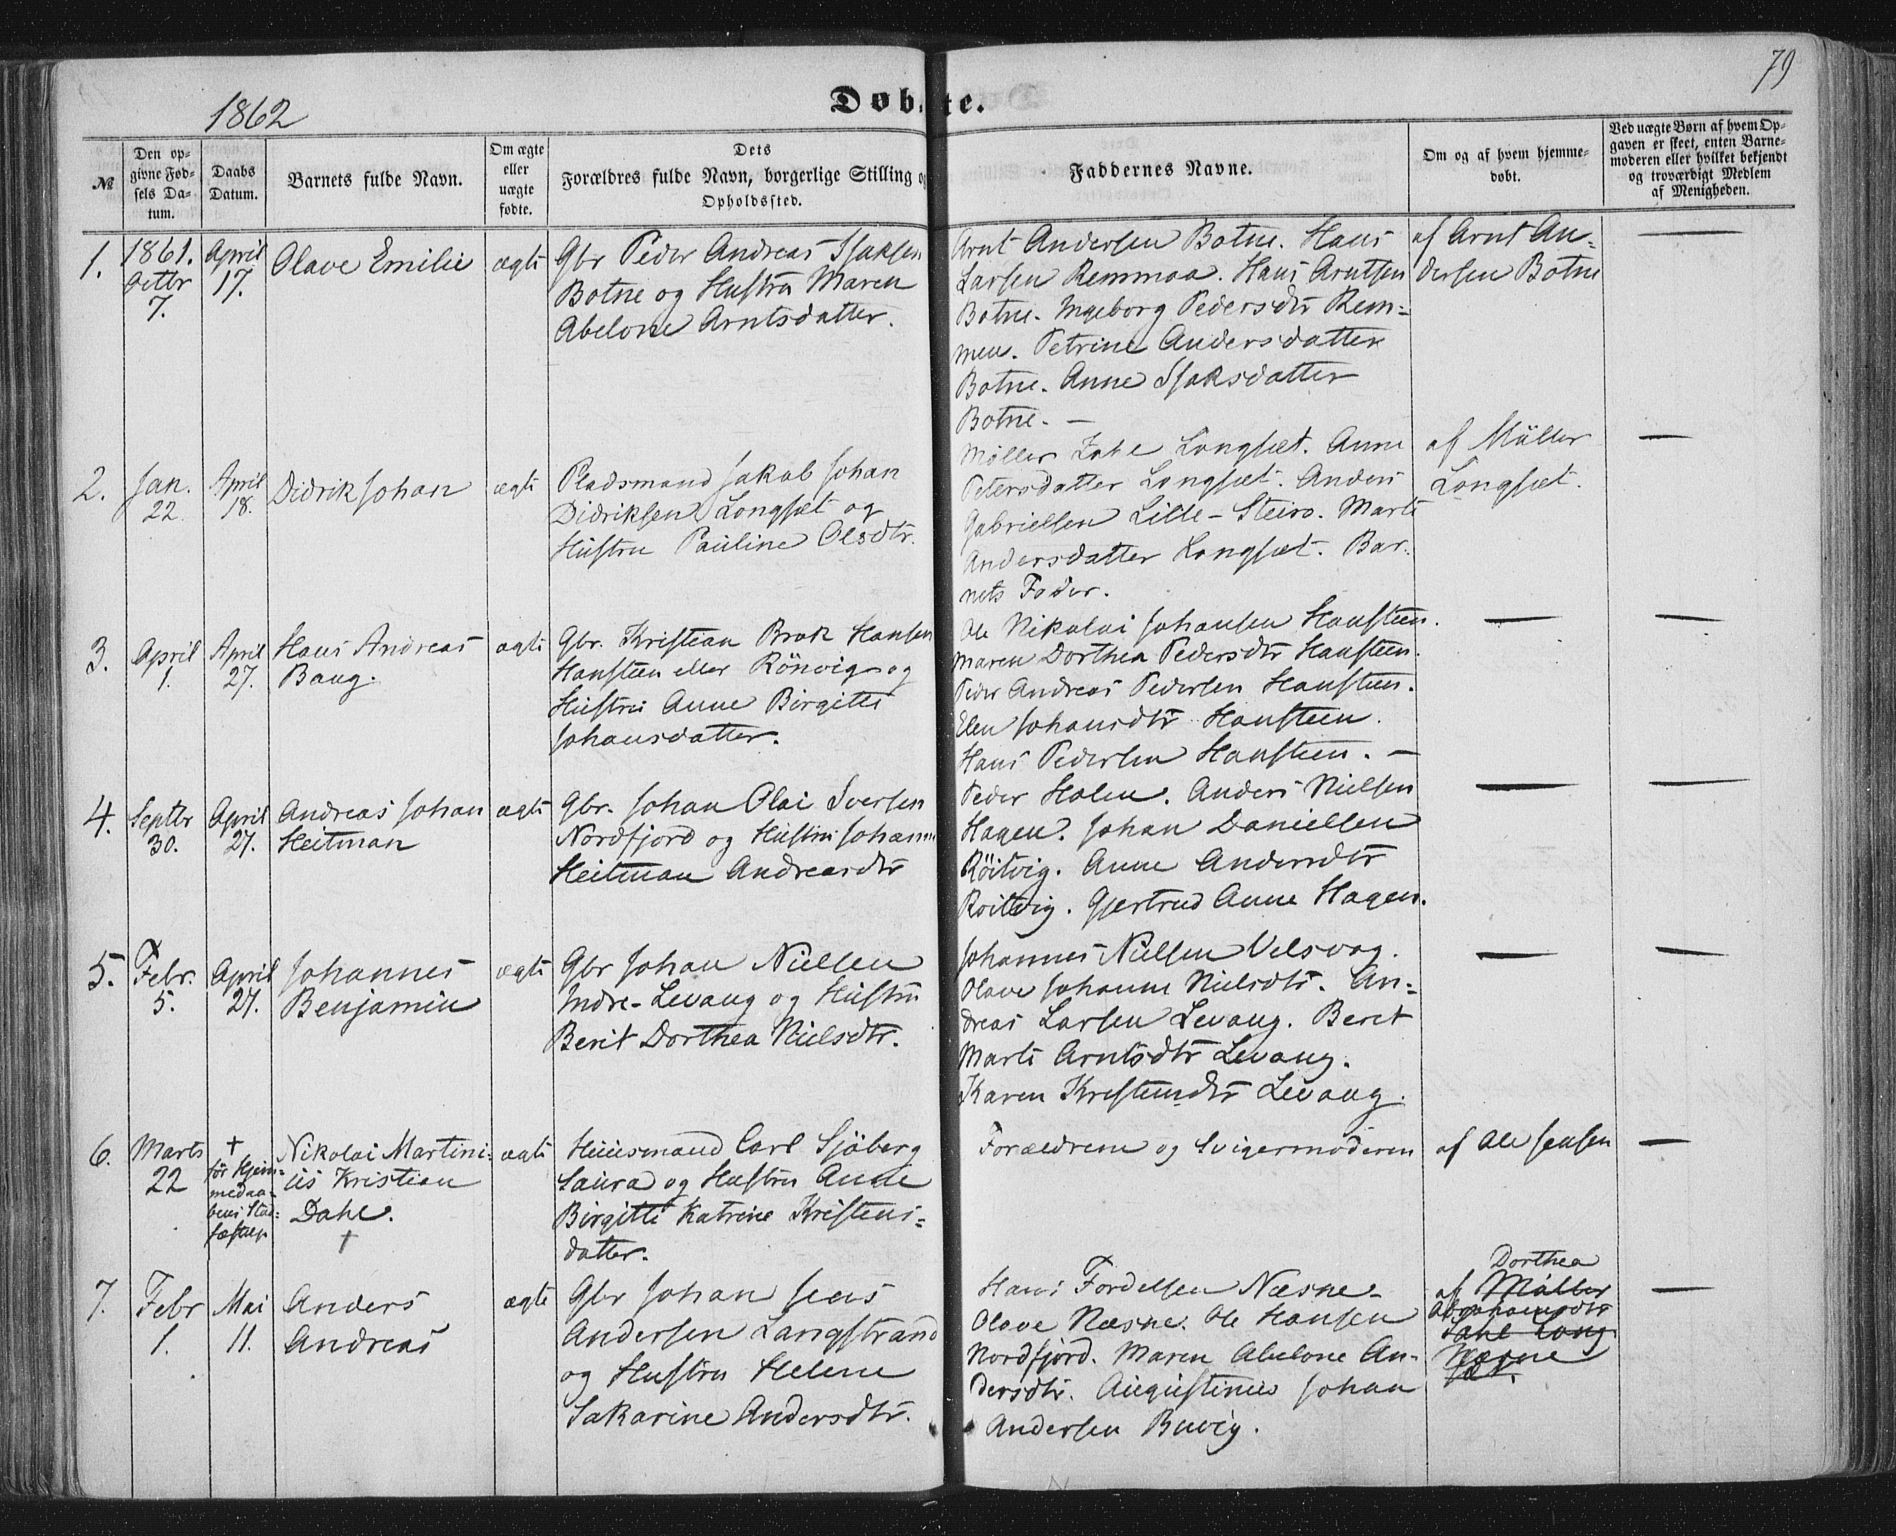 79
1862
Døbte.
№
Den op-
givne Fød-
sels Da-
tum.
Daabs
Datum.
Barnets fulde Navn.
Om ægte
eller
uægte
fødte.
Dets
Forældres fulde Navn, borgerlige Stilling og
Opholdssted.
Faddernes Navne.
Om og af hvem hjemme-
døbt.
Ved uægte Børn af hvem Op-
gaven er skeet, enten Barne-
moderen eller hvilket bekjendt
og troværdigt Medlem
af Menigheden.
1.
1861.
Octbr
7.
April
17.
Olave Emilie
ægte
Gbr Peder Andreas Isaksen
Botne og Hustru Maren
Abelone Arntsdatter.
Arnt Andersen Botne. Hans
Larsen Remmaa. Hans Arntsen
Botne. Ingeborg Pedersdtr Rem-
men. Petrine Andersdatter
Botne. Anne Isaksdatter
Botne. —
af Arnt An-
dersen Botne
—
2.
Jan.
22.
April
18.
Didrik Johan
ægte
Pladsmand Jakob Johan
Didriksen Longset og
Hustru Pauline Olsdtr.
Møller Zahl Longset. Anne
Petersdatter Longset. Anders
Gabrielsen Lille-Steiro. Marte
Andersdatter Longset. Bar-
nets Fader.
af Müller
Longset.
—
3.
April
1.
April
27.
Hans Andreas
Baug.
ægte
Gbr. Kristian Brok Hansen
Hansteen eller Rönvig og
Hustru Anne Birgitte
Johansdatter.
Ole Nikolai Johansen Hansteen.
Maren Dorthea Pedersdtr Hansteen.
Peder Andreas Pedersen Hansteen.
Elen Johansdtr Hansteen.
Hans Pedersen Hansteen. —
—
—
4.
Septbr
30.
April
27.
Andreas Johan
Heitman
ægte
Gbr. Johan Olai Iversen
Nordfjord og Hustru Johanne
Heitman Andreasdtr
Peder Holen. Anders Nielsen
Hagen. Johan Danielsen
Röitvig. Anne Andersdtr
Röitvig. Gjertrud Anne Hagen.
—
—
5.
Febr.
5.
April
27.
Johannes
Benjamin
ægte
Gbr Johan Nielsen
Indre-Levang og Hustru
Berit Dorthea Nielsdtr.
Johannes Nielsen Velsvag.
Olave Johanne Nielsdtr. An-
dreas Larsen Levang. Beret
Marte Arntsdtr Levang.
Karen Kristensdtr Levang.
—
—
6.
Marts
22
+
før Hjem-
medaa-
bens Stad-
fæstelse
Nikolai Martini-
us Kristian
Dahl.
+
ægte
Huusmand Carl Sjöberg
Saura og Hustru Anne
Birgitte Katrine Kristens-
datter.
Forældrene og Svigermoderen
af Ole Jensen
—
7.
Febr
1.
Mai
11.
Anders
Andreas
ægte
Gbr Johan Jens
Andersen Langstrand
og Hustru Helene
Sakarine Andersdtr.
Hans Fordelsen Næsne-
Olave Næsne. Ole Hansen
Nordfjord. Maren Abelone An-
dersdtr. Augustinus Johan
Andersen Buvig.
Dorthea
af Møller
Abrahamsdtr
Zahl Long-
Næsne
set.
—